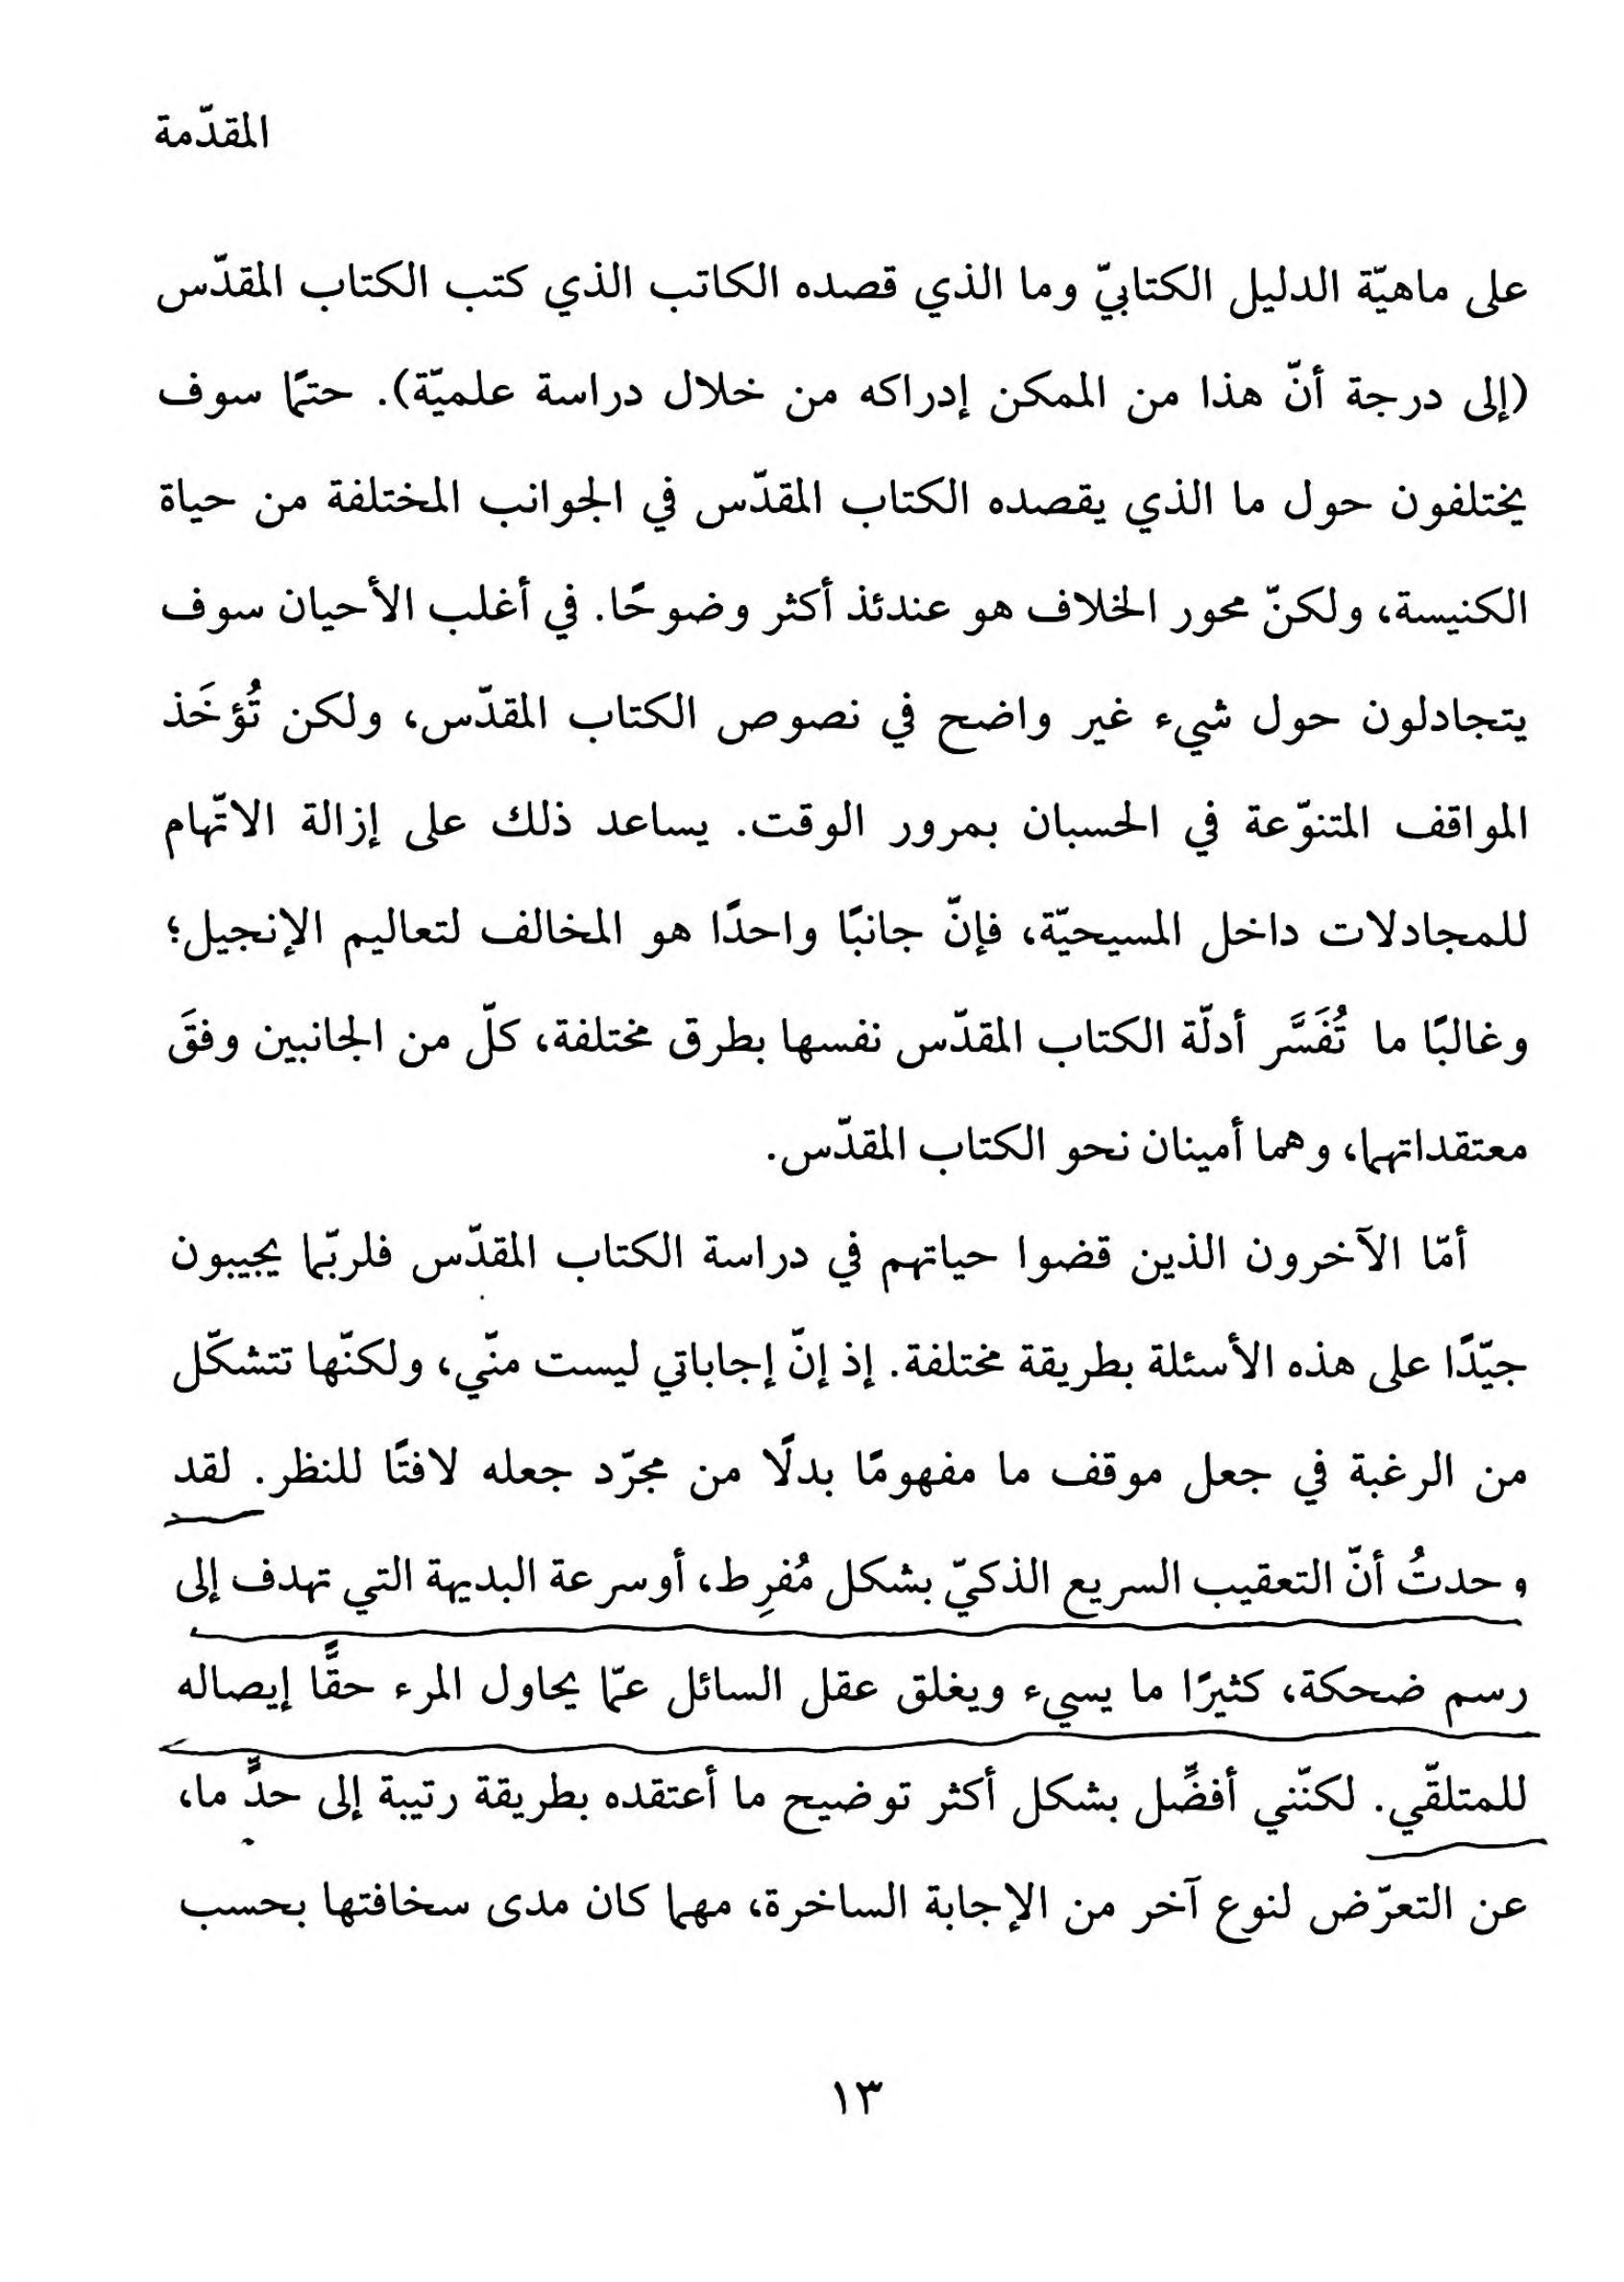 المقدّمة
على ماهيّة الدليل الكتابيّ وما الذي قصده الكاتب الذي كتب الكتاب المقدّس
(إلى درجة أنّ هذا من الممكن إدراكه من خلال دراسة علميّة). حتمًا سوف
يختلفون حول ما الذي يقصده الكتاب المقدّس في الجوانب المختلفة من حياة
الكنيسة، ولكنّ محور الخلاف هو عندئذ أكثر وضوحًا. في أغلب الأحيان سوف
يتجادلون حول شيء غير واضح في نصوص الكتاب المقدّس، ولكن تُؤخَذ
المواقف المتنوّعة في الحسبان بمرور الوقت. يساعد ذلك على إزالة الاتّهام
للمجادلات داخل المسيحيّة، فإنّ جانبًا واحدًا هو المخالف لتعاليم الإنجيل؛
وغالبًا ما تُفَسَّر أدلّة الكتاب المقدّس نفسها بطرق مختلفة، كلّ من الجانبين وفقَ
معتقداتهما، وهما أمينان نحو الكتاب المقدّس.
أمّا الآخرون الذين قضوا حياتهم في دراسة الكتاب المقدّس فلربّما يجيبون
جيّدًا على هذه الأسئلة بطريقة مختلفة. إذ إنّ إجاباتي ليست منّي، ولكنّها تتشكّل
من الرغبة في جعل موقف ما مفهومًا بدلًا من مجرّد جعله لافتًا للنظر. لقد
وحدتُ أنّ التعقيب السريع الذكيّ بشكل مُفرِط، أوسرعة البديهة التي تهدف إلى
رسم ضحكة، كثيرًا ما يسيء ويغلق عقل السائل عمّا يحاول المرء حقًّا إيصاله
للمتلقّي. لكنّني أفضّل بشكل أكثر توضيح ما أعتقده بطريقة رتيبة إلى حدٍّ ما،
عن التعرّض لنوع آخر من الإجابة الساخرة، مهما كان مدى سخافتها بحسب
١٣